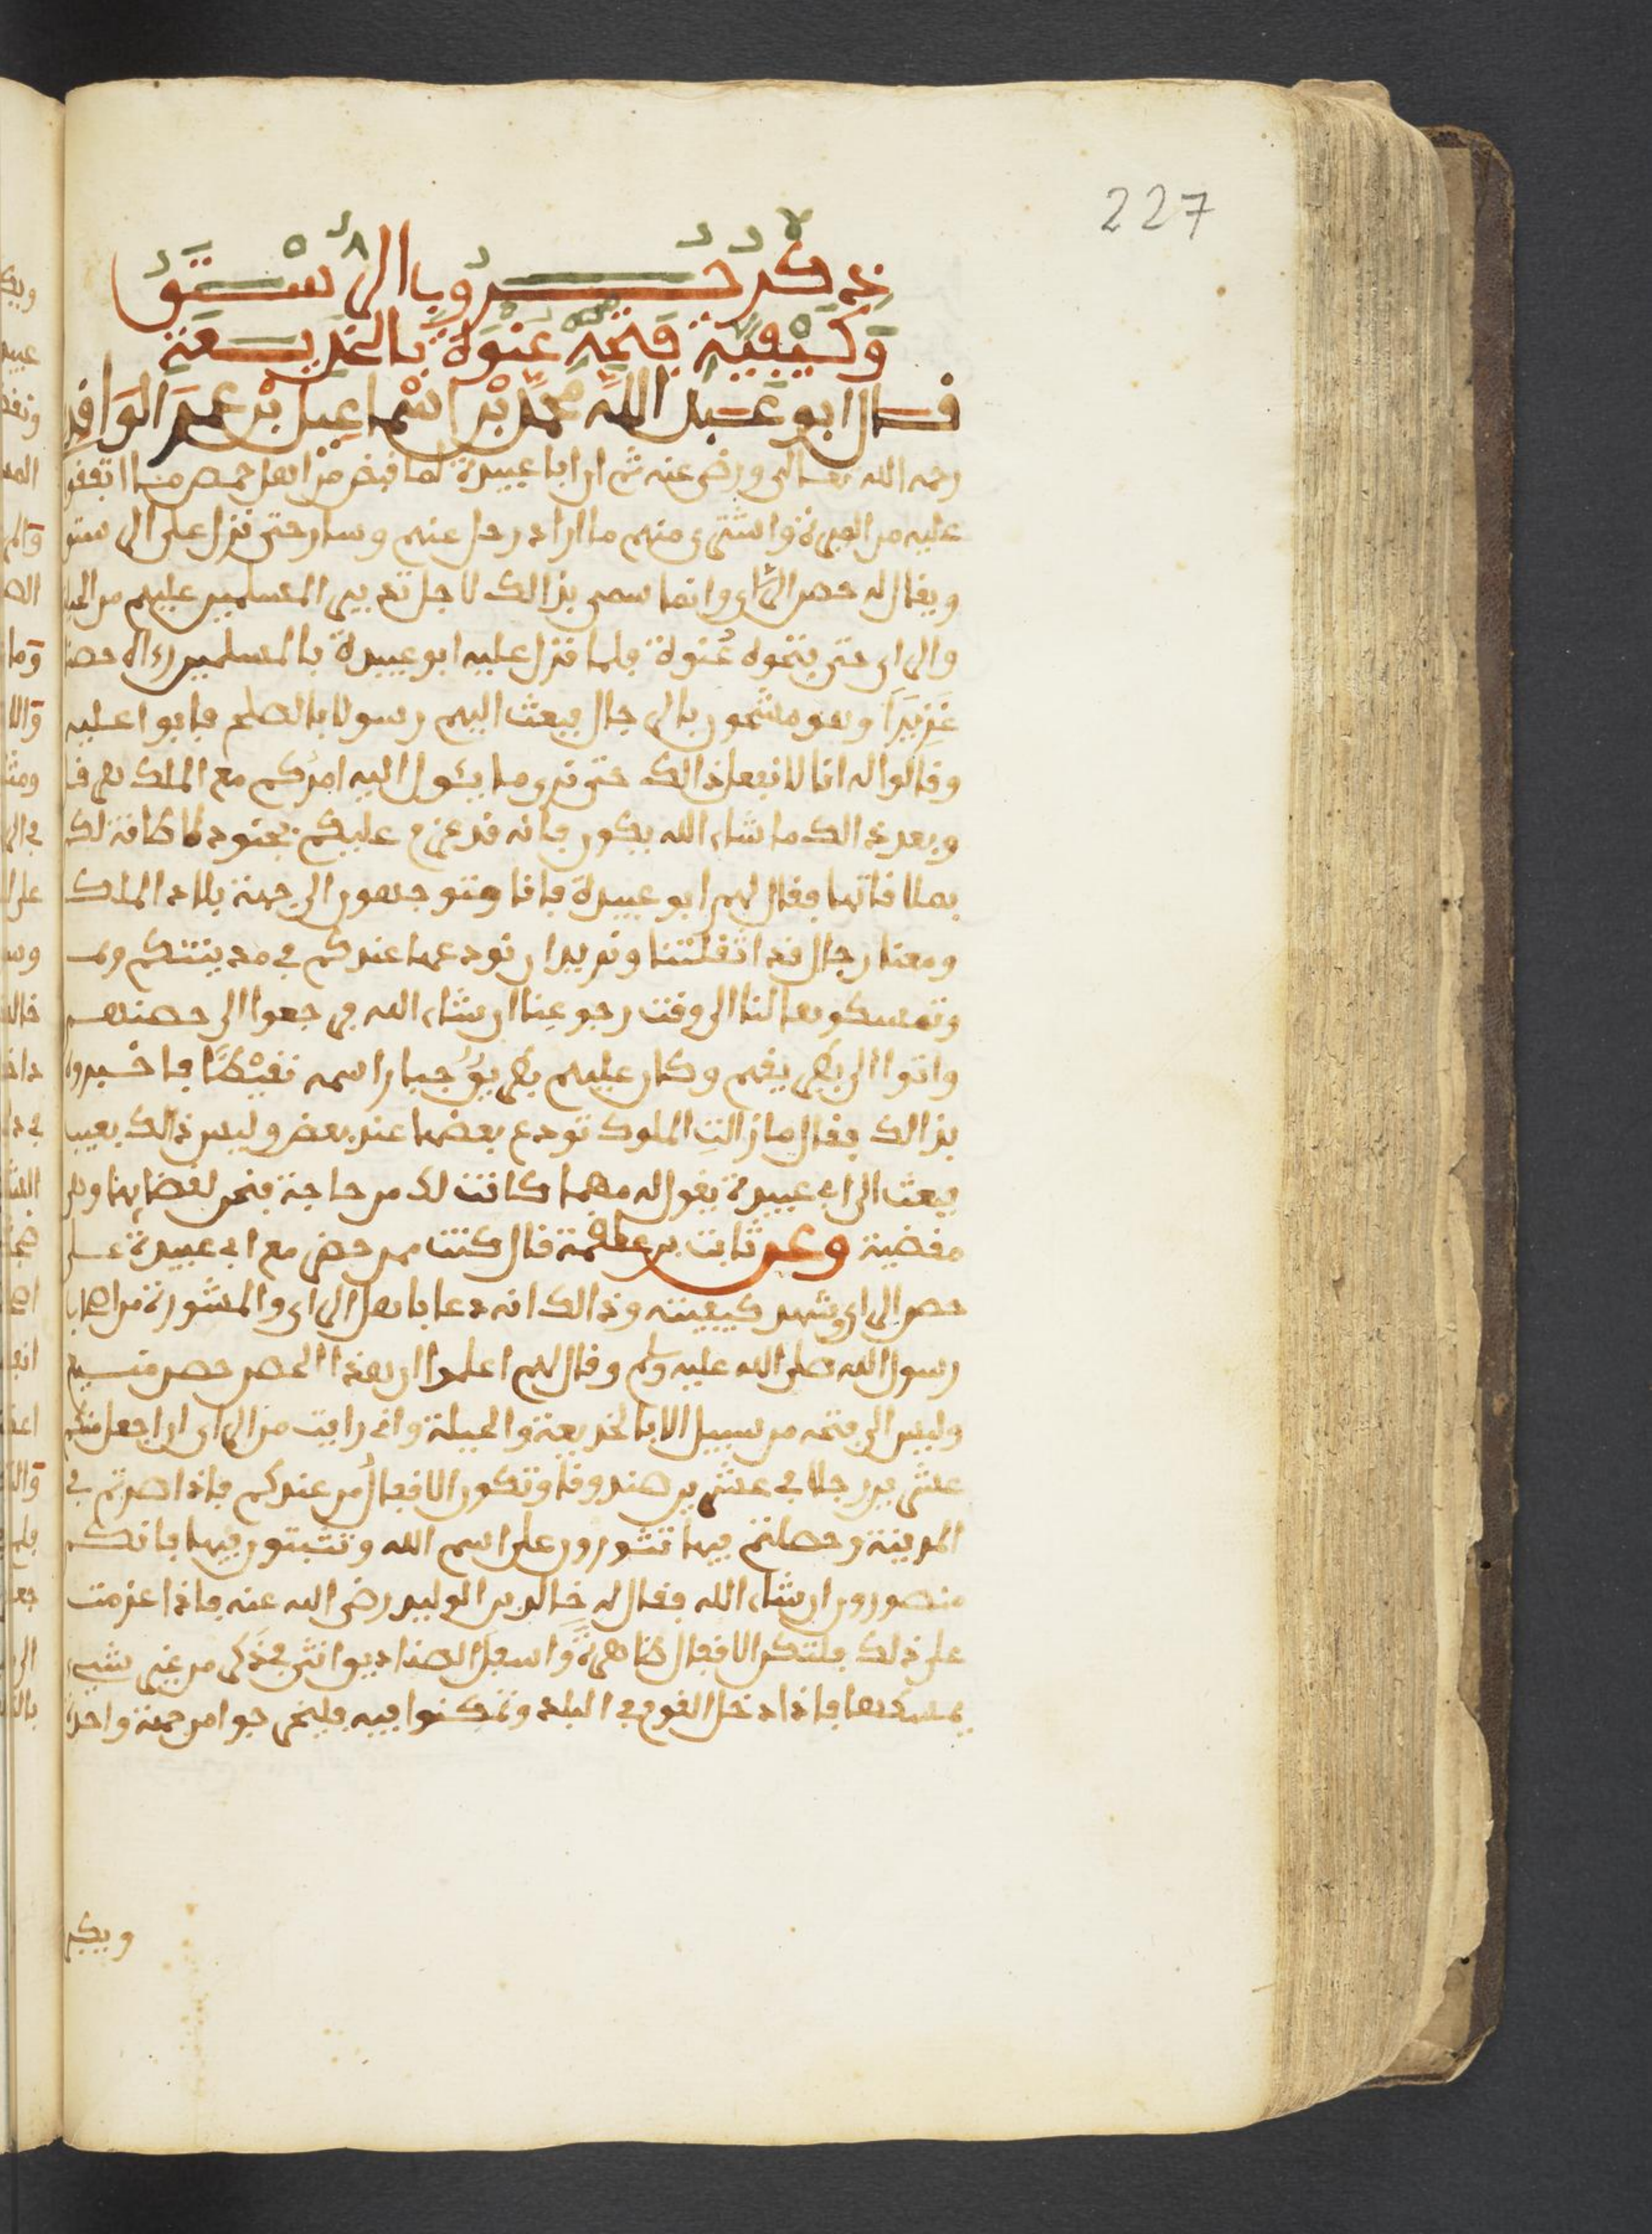 227
ذكر حروب الرستق
وكيفية فتحه عنوة بالخديعة
قال ابو عبد الله محمد بن اسماعيل بن عمر الواقد
رحمه الله تعالى ورضي عنه ثم ان ابا عبيدة لما قبض من اهل حمص ما اتفقوا
عليه من الميرة واشترى منهم ما اراد رحل عنهم وسار حتى نزل على الرستق
ويقال له حصن الراي وانما سمي بذالك لاجل تدبير المسلمين عليهم من
والراي حتى فتحوه عنوة فلما نزل عليه ابو عبيدة بالمسلمين راه حصنا
عزيزا وهو مشحون بالرجال فبعث اليهم رسولا بالصلح فابوا عليه
وقالوا له انا لا نفعل ذالك حتى نرى ما يئول اليه امركم مع الملك هرقل
وبعد ذالك ما شاء الله يكون فانه قد عزم عليكم بجنود لا طاقة لك
بملاقاتها فقال لهم ابو عبيدة فانا متوجهون الى جهة بلاد الملك
ومعنا رجال قد اثقلتنا ونريد ان نودعها عندكم في مدينتكم
وتمسكوها لنا الى وقت رجوعنا ان شاء الله فرجعوا الى حصنهم
واتوا الى بطريقهم وكان عليهم بطريق جبار اسمه نقيطا فاخبروه
بذالك فقال ما زالت الملوك تودع بعضها عند بعض وليس ذالك بعيب
فبعث الى ابي عبيدة يقول له مهما كانت لك من حاجة فنحن لقضايها
مقضية وعن ثابت بن علقمة قال كنت ممن حضر مع ابي عبيدة على
حصن الراي وشهد كيفيته وذالك انه دعا باهل الراي والمشورة من اصحاب
رسول الله صلى الله عليه وسلم وقال لهم اعلموا ان هذا الحصن حصن منيع
وليس الى فتحه من سبيل الا بالخديعة والحيلة واني رايت من الراي ان اجعل منكم
عشرين رجلا في عشرين صندوقا وتكون الاقفال من عندكم فاذا صرتم في
المدينة وحصلتم فيها تثورون على اسم الله وتثبتون فيها فانكم
منصورون ان شاء الله فقال له خالد بن الوليد رضي الله عنه فاذا عزمت
على ذلك فلتكن الاقفال ظاهرة واسفل الصناديق انثى في ذكر من غير شيء
يمسكها فاذا دخل القوم في البلد وتمكنوا فيه فليخرجوا من جهة واحدة
ويكبر